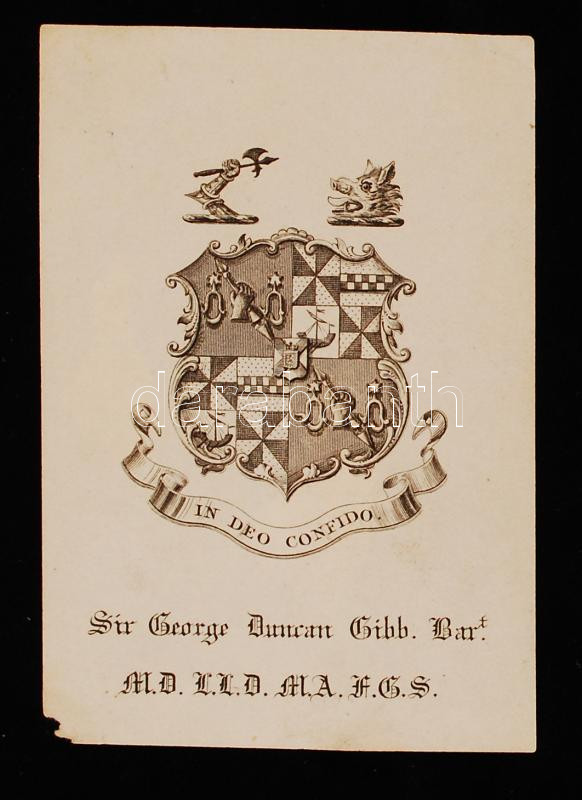 darabanth
IN DEO CONFIDO.
Sir George Duncan Gibb. Bart.
M.D. L.L.D. M.A. F.G.S.